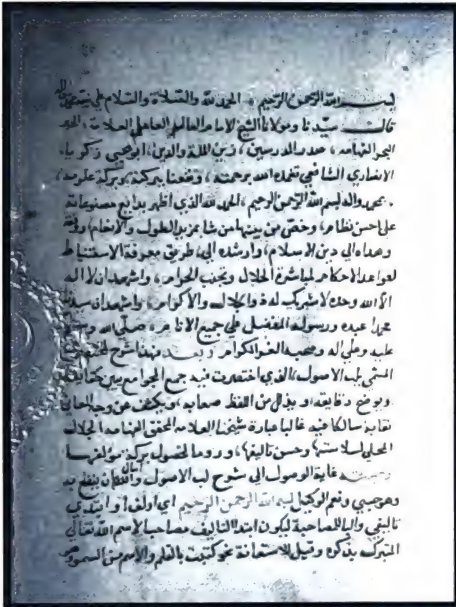 بسم الله الرحمن الرحيم ، الحمد لله والصلاة والسلام على
قال سيدنا ومولانا الشيخ الامام العالم العامل العلامة ، الحبر
البحر الفهامه ، صدر المدرسين ، زين الملة والدين ، ابو يحيى زكريا
الانصاري الشافعي تغمده الله برحمته ، ونفعنا ببركته وبركة علومه ،
بمحمد واله بسم الله الرحمن الرحيم ، الحمد لله الذي اظهر بدائع مصنوعاته
على احسن نظام ، وخص من بينها من شاء بمزيد الطول والانعام ، ووفقه
وهداه الى دين الاسلام ، وارشده الى طريق معرفة الاستنباط
لقواعد الاحكام لمباشرة الحلال وتجنب الحرام ، واشهد ان لا اله
الا الله وحده لا شريك له ذو الجلال والاكرام ، واشهد ان سيدنا
محمدا عبده ورسوله المفضل على جميع الانام ، صلى الله وسلم
عليه وعلى اله وصحبه الغر الكرام وبعد فهذا شرح لمختصري
المسمى بلب الاصول ، الذي اختصرت فيه جمع الجوامع يبين حقائقه
ويوضح دقايقه ويذلل من اللفظ صعابه ، ويكشف عن وجه المعاني
نقابه سالكا فيه غالبا عبارة شيخنا العلامه المحقق الفهامه الجلال
المحلي لسلاستها وحسن تاليفها ، وروما لحصول بركة مؤلفها
وسميته غاية الوصول الى شرح لب الاصول والله اسال ان ينفع به
وهو حسبي ونعم الوكيل بسم الله الرحمن الرحيم اي اولف او ابتدي
تاليفي والبا للمصاحبة ليكون ابتدا التاليف مصاحبا لاسم الله تعالى
المتبرك بذكره وقيل للاستعانة نحو كتبت بالقلم والاسم من السمو وهو